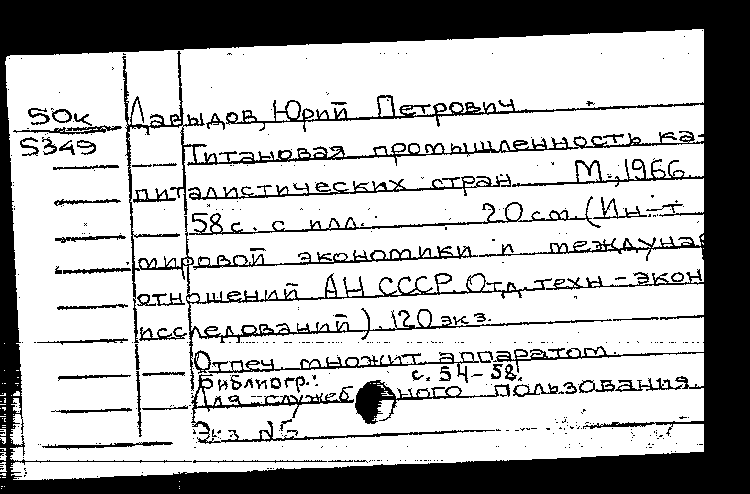 50к Давыдов, Юрий Петрович
S349 Титановая промышленность ка-
питалистических стран. М., 1966.
58 с. с илл. 20 см. (Ин-т
мировой экономики и междунар
отношений АН СССР. Отд. техн.-экон
исследований). 120 экз.
Отпеч. множит. аппаратом.
Библиогр.: с. 54-58.
Для служебного пользования.
Экз. №5